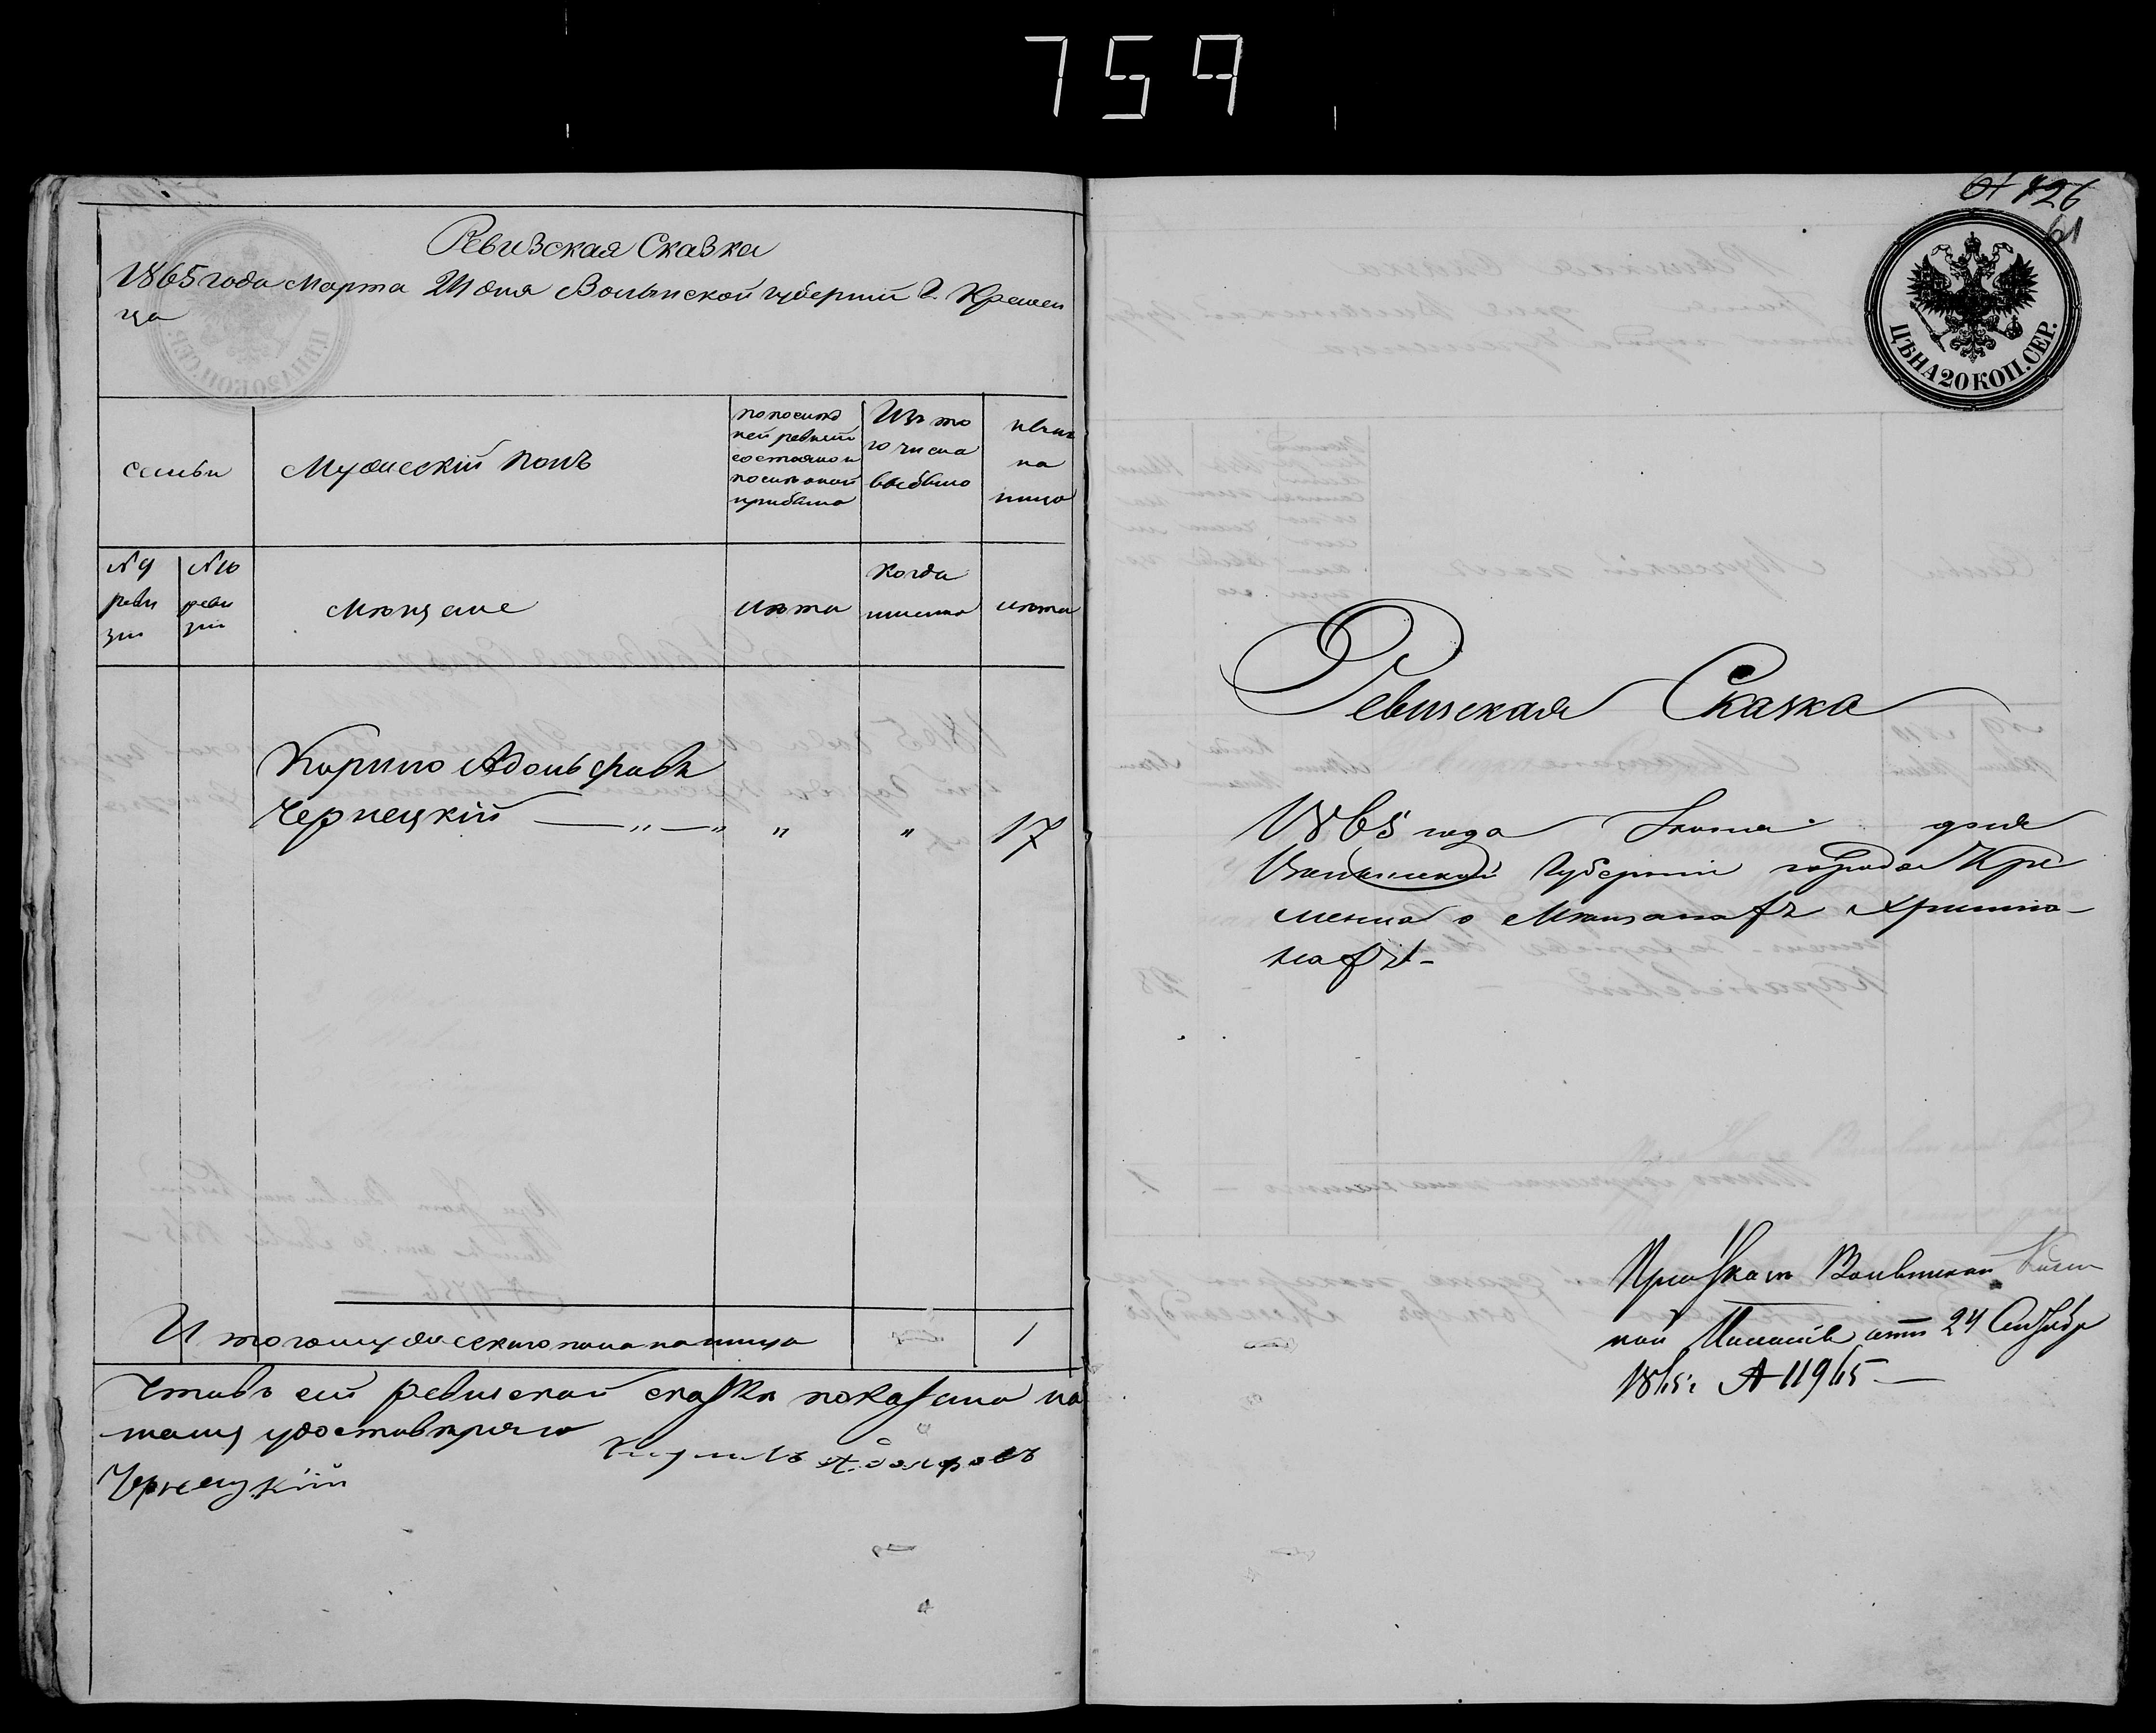 759
Ревизская Сказка
1865 года Марта 24 дня Волынской губерніи Г. Кремен
ца
семьи
Мужескій полъ
по послѣд
ней ревизіи
состояло и
после оной
прибыло
Изъ то
го числа
выбыло
нынѣ
на
лицо
№ 9
реви
зіи
№ 10
реви
зіи
Мѣщане
лѣта
когда
именно
лѣта
Адольфовъ
Чернецкій — „ — „ „ „ 17
Итого мужескаго пола на лицо 1
Что въ сей ревизской сказкѣ показано по
Адольфовъ
Чернецкій
61 726
61
ЦѢНА 20 КОП. СЕР.
Ревизская Сказка
1865 года Іюня дня
Волынской Губерніи города Кре
менца о Мѣщанахъ Христіа-
нахъ.
При Указѣ Волынской Казен
ной Палаты отъ 24 Октября
1865 г. № 11965 —